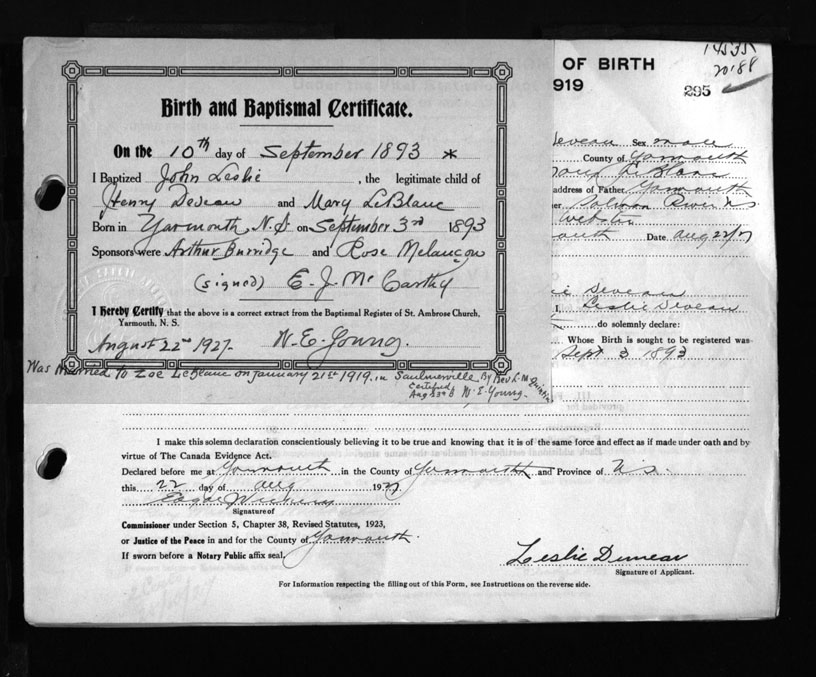 14535
20188
OF BIRTH
919
295
Birth and Baptismal Certificate.
On the 10th day of September 1893 *
I Baptized John Leslie, the legitimate child of
Henry Deveau and Mary LeBlanc
Born in Yarmouth, N.S on September 3rd 1893
Sponsors were Arthur Burridge and Rose Melançon
(signed) E. J. McCarthy
I Hereby Certify that the above is a correct extract from the Baptismal Register of St. Ambrose Church,
Yarmouth, N. S.
August 22nd 1927. W. E. Young.
Was married to Zoe LeBlanc on January 21st 1919. in Saulnierville By Rev L. M.
Certified
W. E. Young.
Deveau Sex male
County of Yarmouth
LeBlanc
address of Father Yarmouth
Salmon River N.S.
Webster
outh Date Aug 22/27
Deveau
I, Leslie Deveau
do solemnly declare:
Whose Birth is sought to be registered was
Sept 3 1893
I make this solemn declaration conscientiously believing it to be true and knowing that it is of the same force and effect as if made under oath and by
virtue of The Canada Evidence Act.
Declared before me at Yarmouth in the County of Yarmouth and Province of N.S.
this 22 day of Aug 1927
Edgar
Signature of
Commissioner under Section 5, Chapter 38, Revised Statutes, 1923,
or Justice of the Peace in and for the County of Yarmouth.
If sworn before a Notary Public affix seal,
Leslie Deveau
Signature of Applicant.
For Information respecting the filling out of this Form, see Instructions on the reverse side.